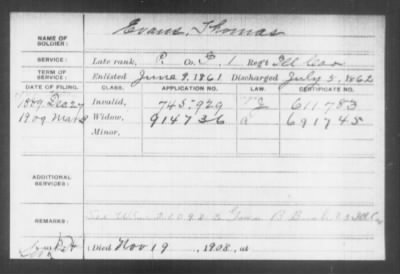 NAME OF SOLDIER: Evans, Thomas
SERVICE: Late rank, P. Co. I 1 Reg't Ill Cav
TERM OF SERVICE: Enlisted June 9, 1861 Discharged July 5, 1862
DATE OF FILING. CLASS. APPLICATION NO. LAW. CERTIFICATE NO.
1889 Invalid, 745.929 611783
1909 Mar Widow, 914736 a 691745
Minor,
ADDITIONAL SERVICES:
REMARKS:
Died Nov 19, 1908, at